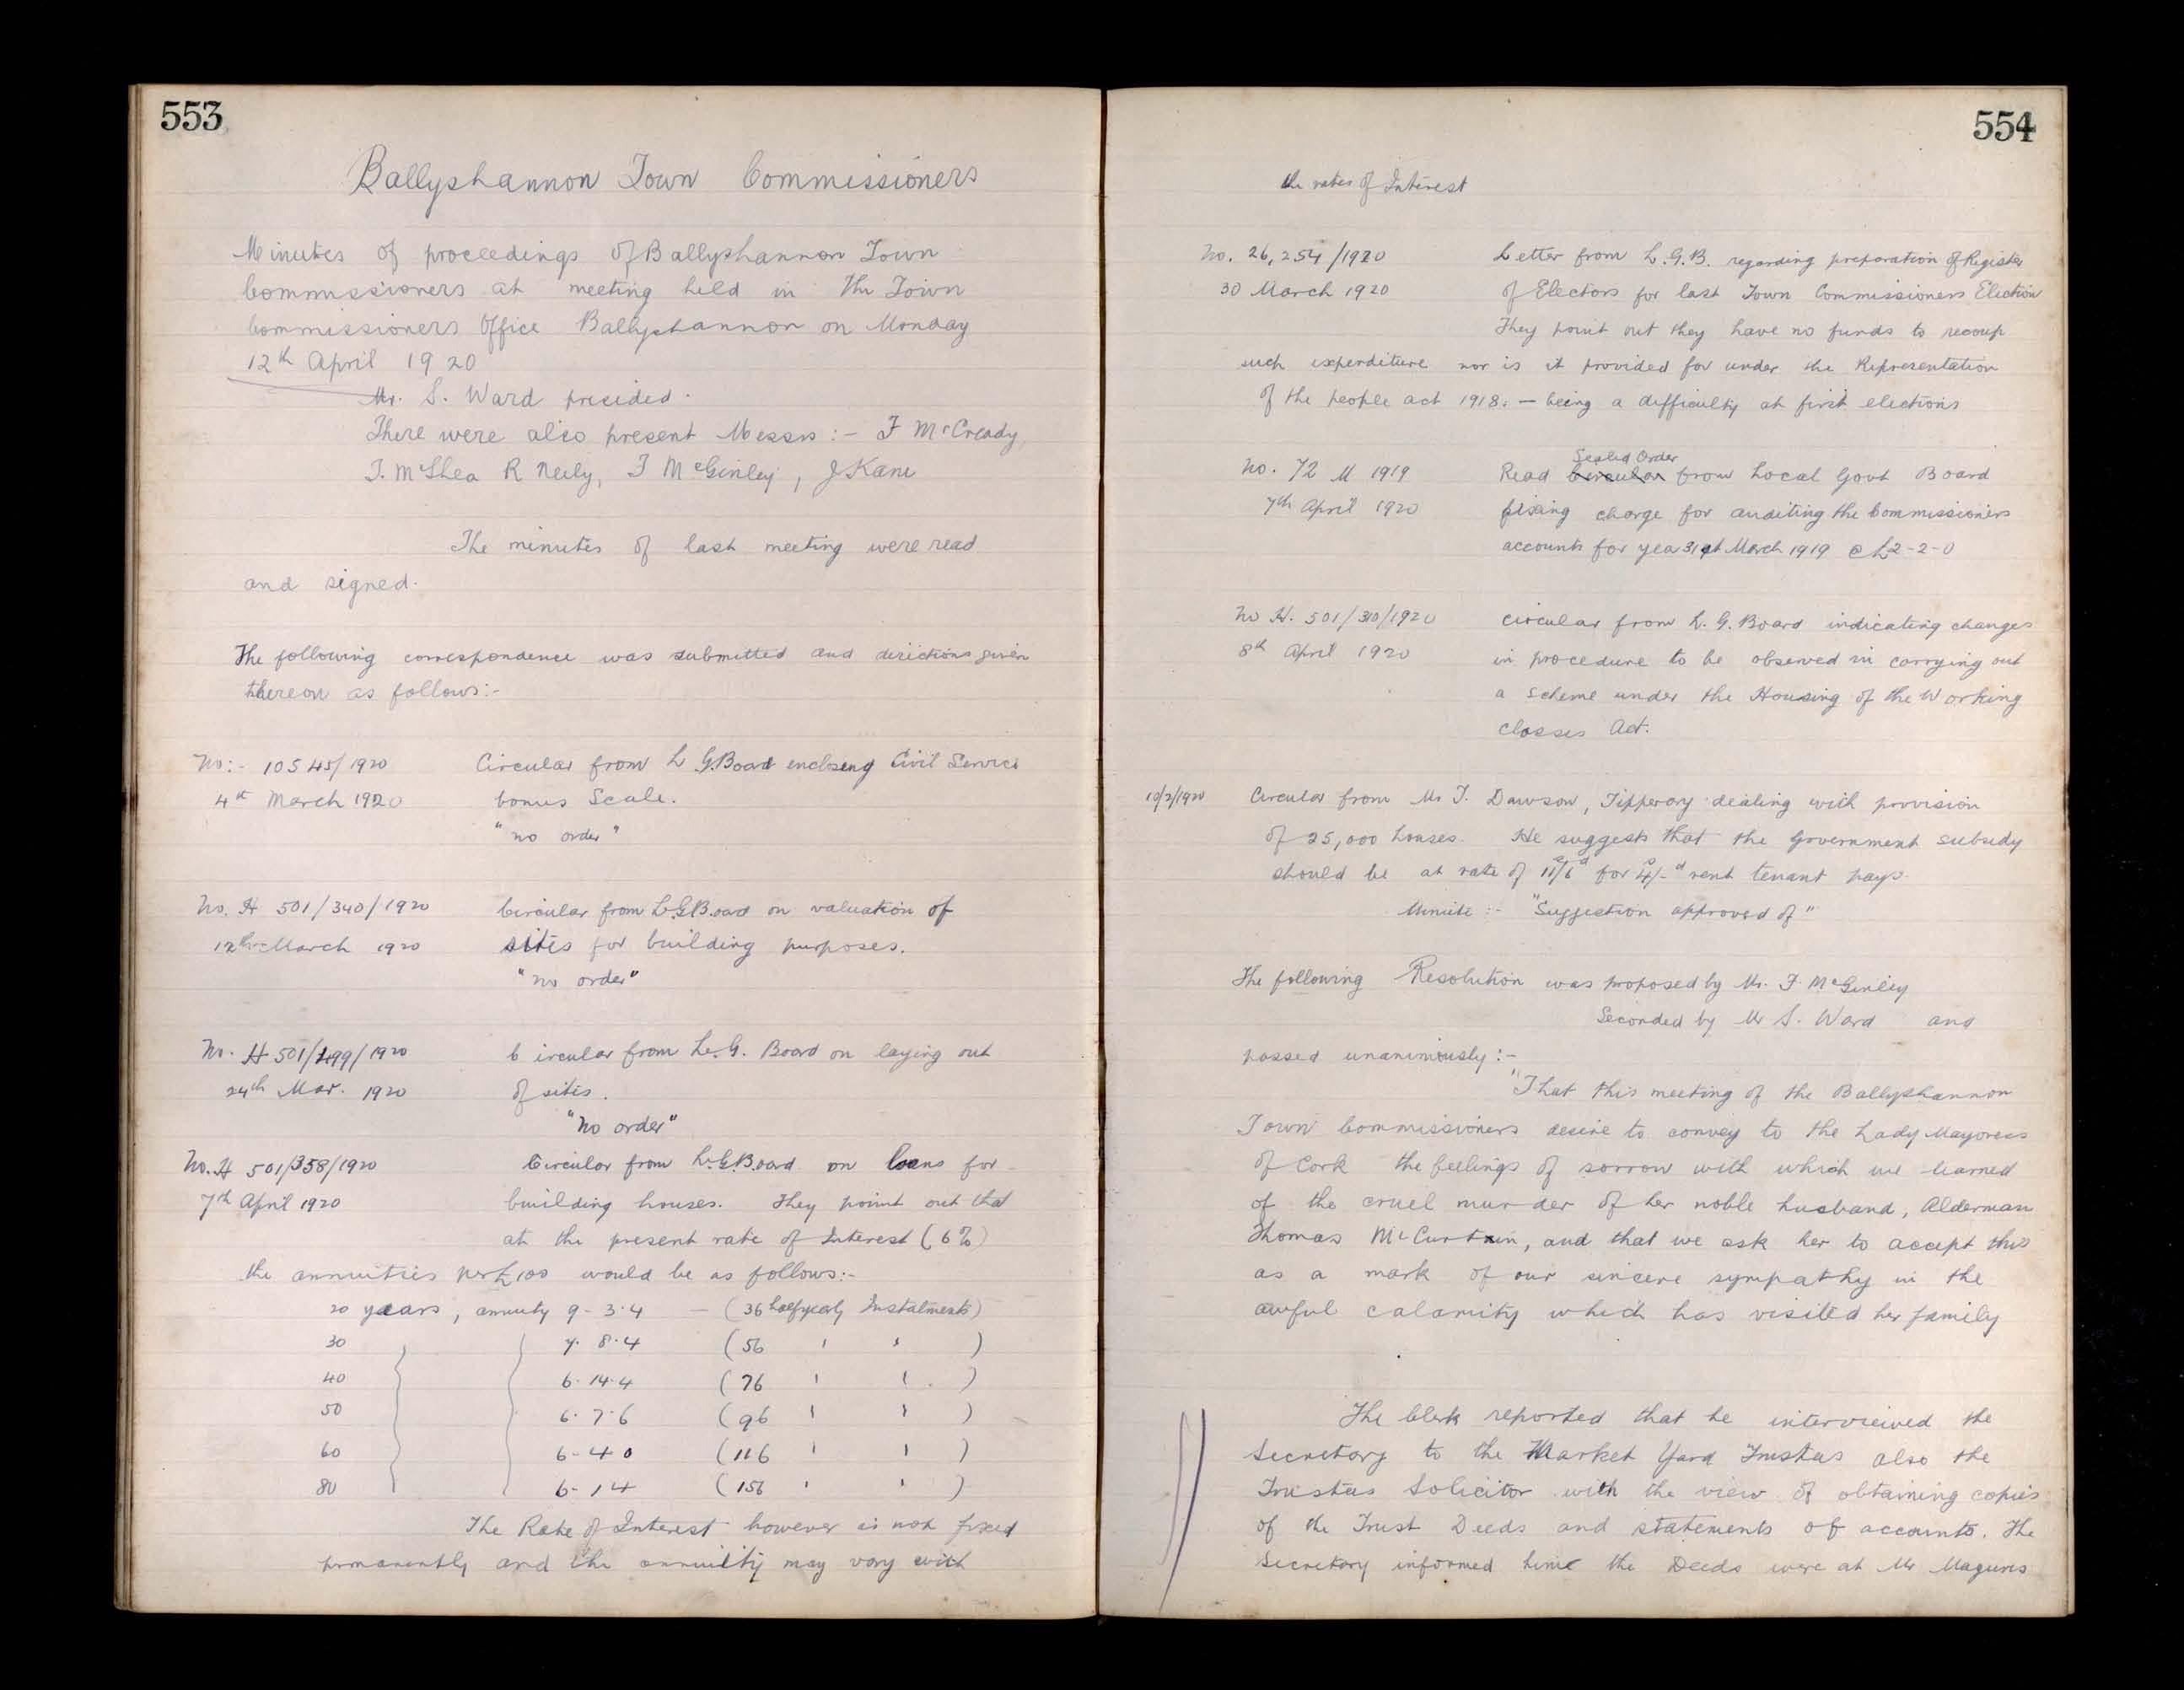 553
Ballyshannon Town Commissioners
Minutes of proceedings of Ballyshannon Town
Commissioners at meeting held in the Town
Commissioners Office Ballyshannon on Monday
12th April 1920
Mr. S. Ward presided.
There were also present Messrs :- F McCready,
T. McShea R Neily, F McGinley, J Kane
The minutes of last meeting were read
and signed.
The following correspondence was submitted and directions given
thereon as follows:-
No:- 10545/1920 Circular from L G.Board enclosing Civil Service
4th March 1920 bonus Scale.
"no order"
No. H 501/340/1920 Circular from L.G.Board on valuation of
12th March 1920 sites for building purposes.
"no order"
No. H 501/499/1920 Circular from L.G. Board on laying out
24th Mar. 1920 of sites.
"No order"
No. H 501/358/1920 Circular from L.G.Board on loans for
7th April 1920 building houses. They point out that
at the present rate of Interest (6%)
the annuities per £100 would be as follows:-
20 years, annuity 9-3-4 — (36 halfyearly Instalments)
30 7. 8.4 (56 " " )
40 6.14.4 (76 " " )
50 6.7.6 (96 " " )
60 6-4 0 (116 " " )
80 6-1 4 (156 " " )
The Rate of Interest however is not fixed
permanently and the annuity may vary with
554
the rates of Interest
No. 26,254/1920 Letter from L.G.B. regarding preparation of Register
30 March 1920 of Electors for last Town Commissioners Election
They point out they have no funds to recoup
such expenditure nor is it provided for under the Representation
of the people act 1918. — being a difficulty at first elections
Sealed Order
No. 72 M 1919 Read Circular from Local Govt Board
7th April 1920 fixing charge for auditing the Commissioners
accounts for year 31st March 1919 @ £2-2-0
No H. 501/310/1920 circular from L. G. Board indicating changes
8th April 1920 in procedure to be observed in carrying out
a scheme under the Housing of the Working
classes Act.
10/2/1920 Circular from Mr T. Dawson, Tipperary dealing with provision
of 25,000 houses. He suggests that the Government subsidy
should be at rate of 11s/6d for 4s/-d rent tenant pays.
Minute :- "Suggestion approved of"
The following Resolution was proposed by Mr. F McGinley
Seconded by Mr S. Ward and
passed unanimously :-
"That this meeting of the Ballyshannon
Town Commissioners desire to convey to the Lady Mayoress
of Cork the feelings of sorrow with which we learned
of the cruel murder of her noble husband, Alderman
Thomas McCurtain, and that we ask her to accept this
as a mark of our sincere sympathy in the
awful calamity which has visited her family
The Clerk reported that he interviewed the
Secretary to the Market Yard Trustees also the
Trustees Solicitor with the view of obtaining copies
of the Trust Deeds and statements of accounts. The
Secretary informed him the Deeds were at Mr Maguires